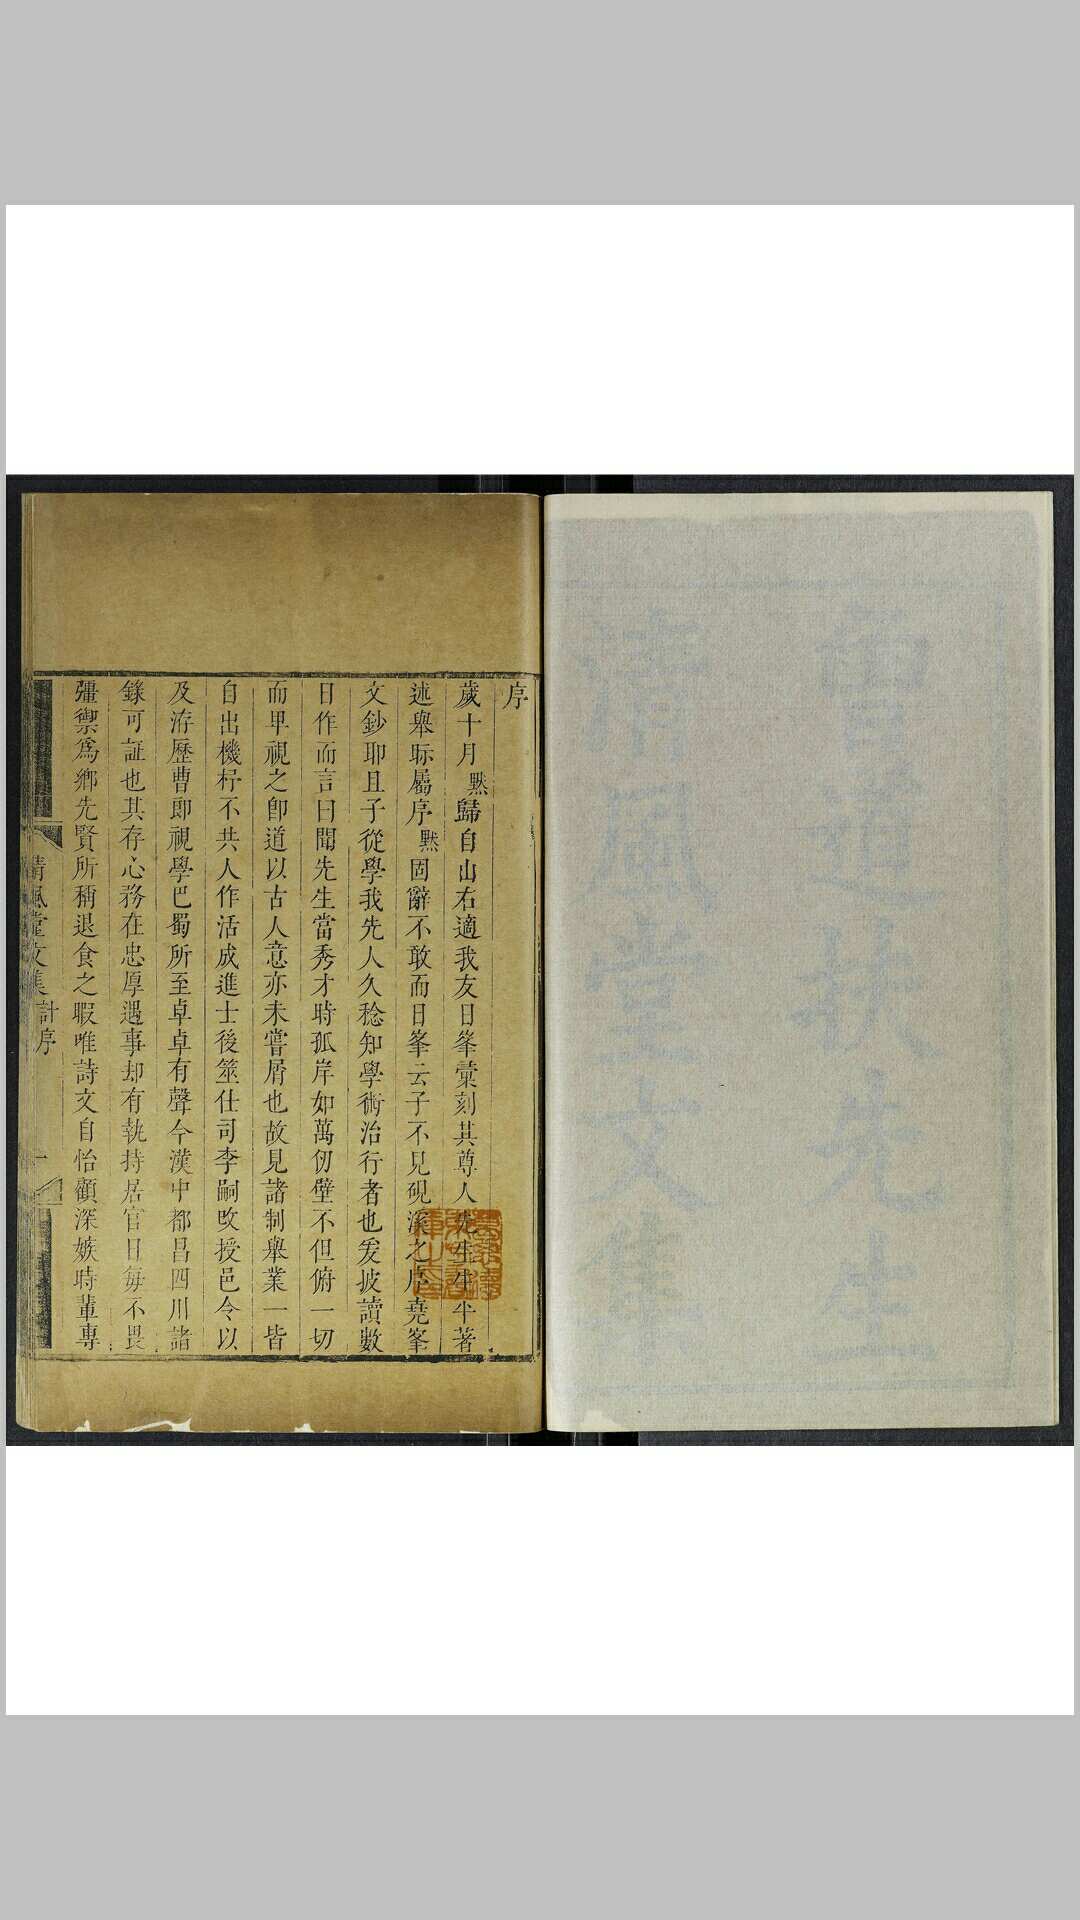 魯道扶先生
清風堂文集
序
歲十月黙歸自山右適我友日峯彚刻其尊人先生生平著
述舉眎屬序黙固辭不敢而日峯云子不見硯溪之序堯峯
文鈔耶且子從學我先人久稔知學術治行者也爰披讀數
日作而言曰聞先生當秀才時孤岸如萬仞壁不但俯一切
而卑視之卽道以古人意亦未嘗屑也故見諸制舉業一皆
自出機杼不共人作活成進士後筮仕司李嗣改授邑令以
及洊歷曹郎視學巴蜀所至卓卓有聲今漢中都昌四川諸
錄可証也其存心務在忠厚遇事却有執持居官日每不畏
彊禦爲鄉先賢所稱退食之暇唯詩文自怡顧深嫉時輩專
清風堂文集 計序 一